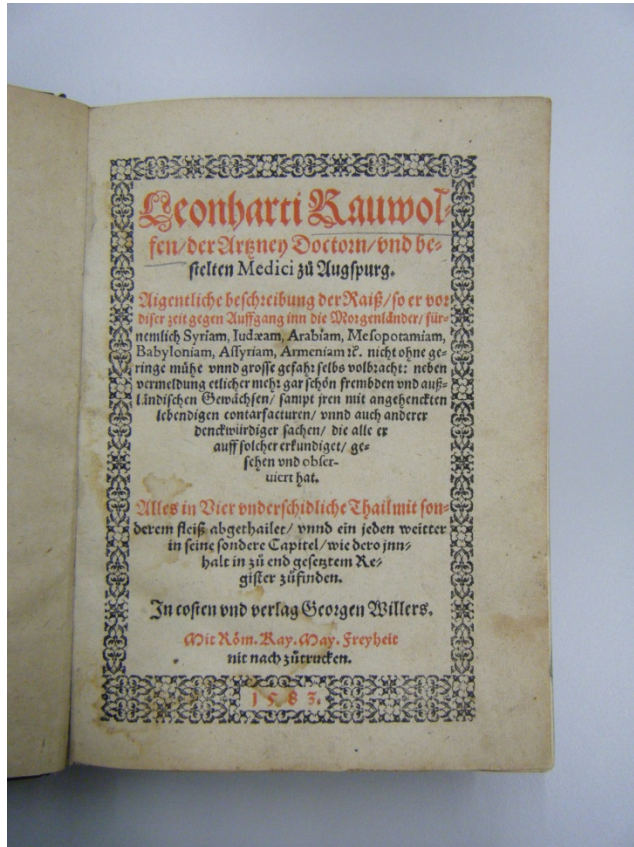 Leonharti Rauwol-
fen/ der Artzney Doctorn/ vnd be-
stelten Medici zů Augspurg.
Aigentliche beschreibung der Raiß/ so er vor
diser zeit gegen Auffgang inn die Morgenländer/ für-
nemlich Syriam, Iudæam, Arabiam, Mesopotamiam,
Babyloniam, Assyriam, Armeniam ꝛc̃. nicht ohne ge-
ringe mühe vnnd grosse gefahr selbs volbracht: neben
vermeldung etlicher mehr gar schön frembden vnd auß-
ländischen Gewächsen/ sampt jren mit angehenckten
lebendigen contarfacturen/ vnnd auch anderer
denckwürdiger sachen/ die alle er
auff solcher erkundiget/ ge-
sehen vnd obser-
uiert hat.
Alles in Vier vnderschidliche Thail mit son-
derem fleiß abgethailet/ vnnd ein jeden weitter
in seine sondere Capitel/ wie dero jnn-
halt in zů end gesetztem Re-
gister zůfinden.
In costen vnd verlag Georgen Willers.
Mit Röm. Kay. May. Freyheit
nit nach zůtrucken.
1583.